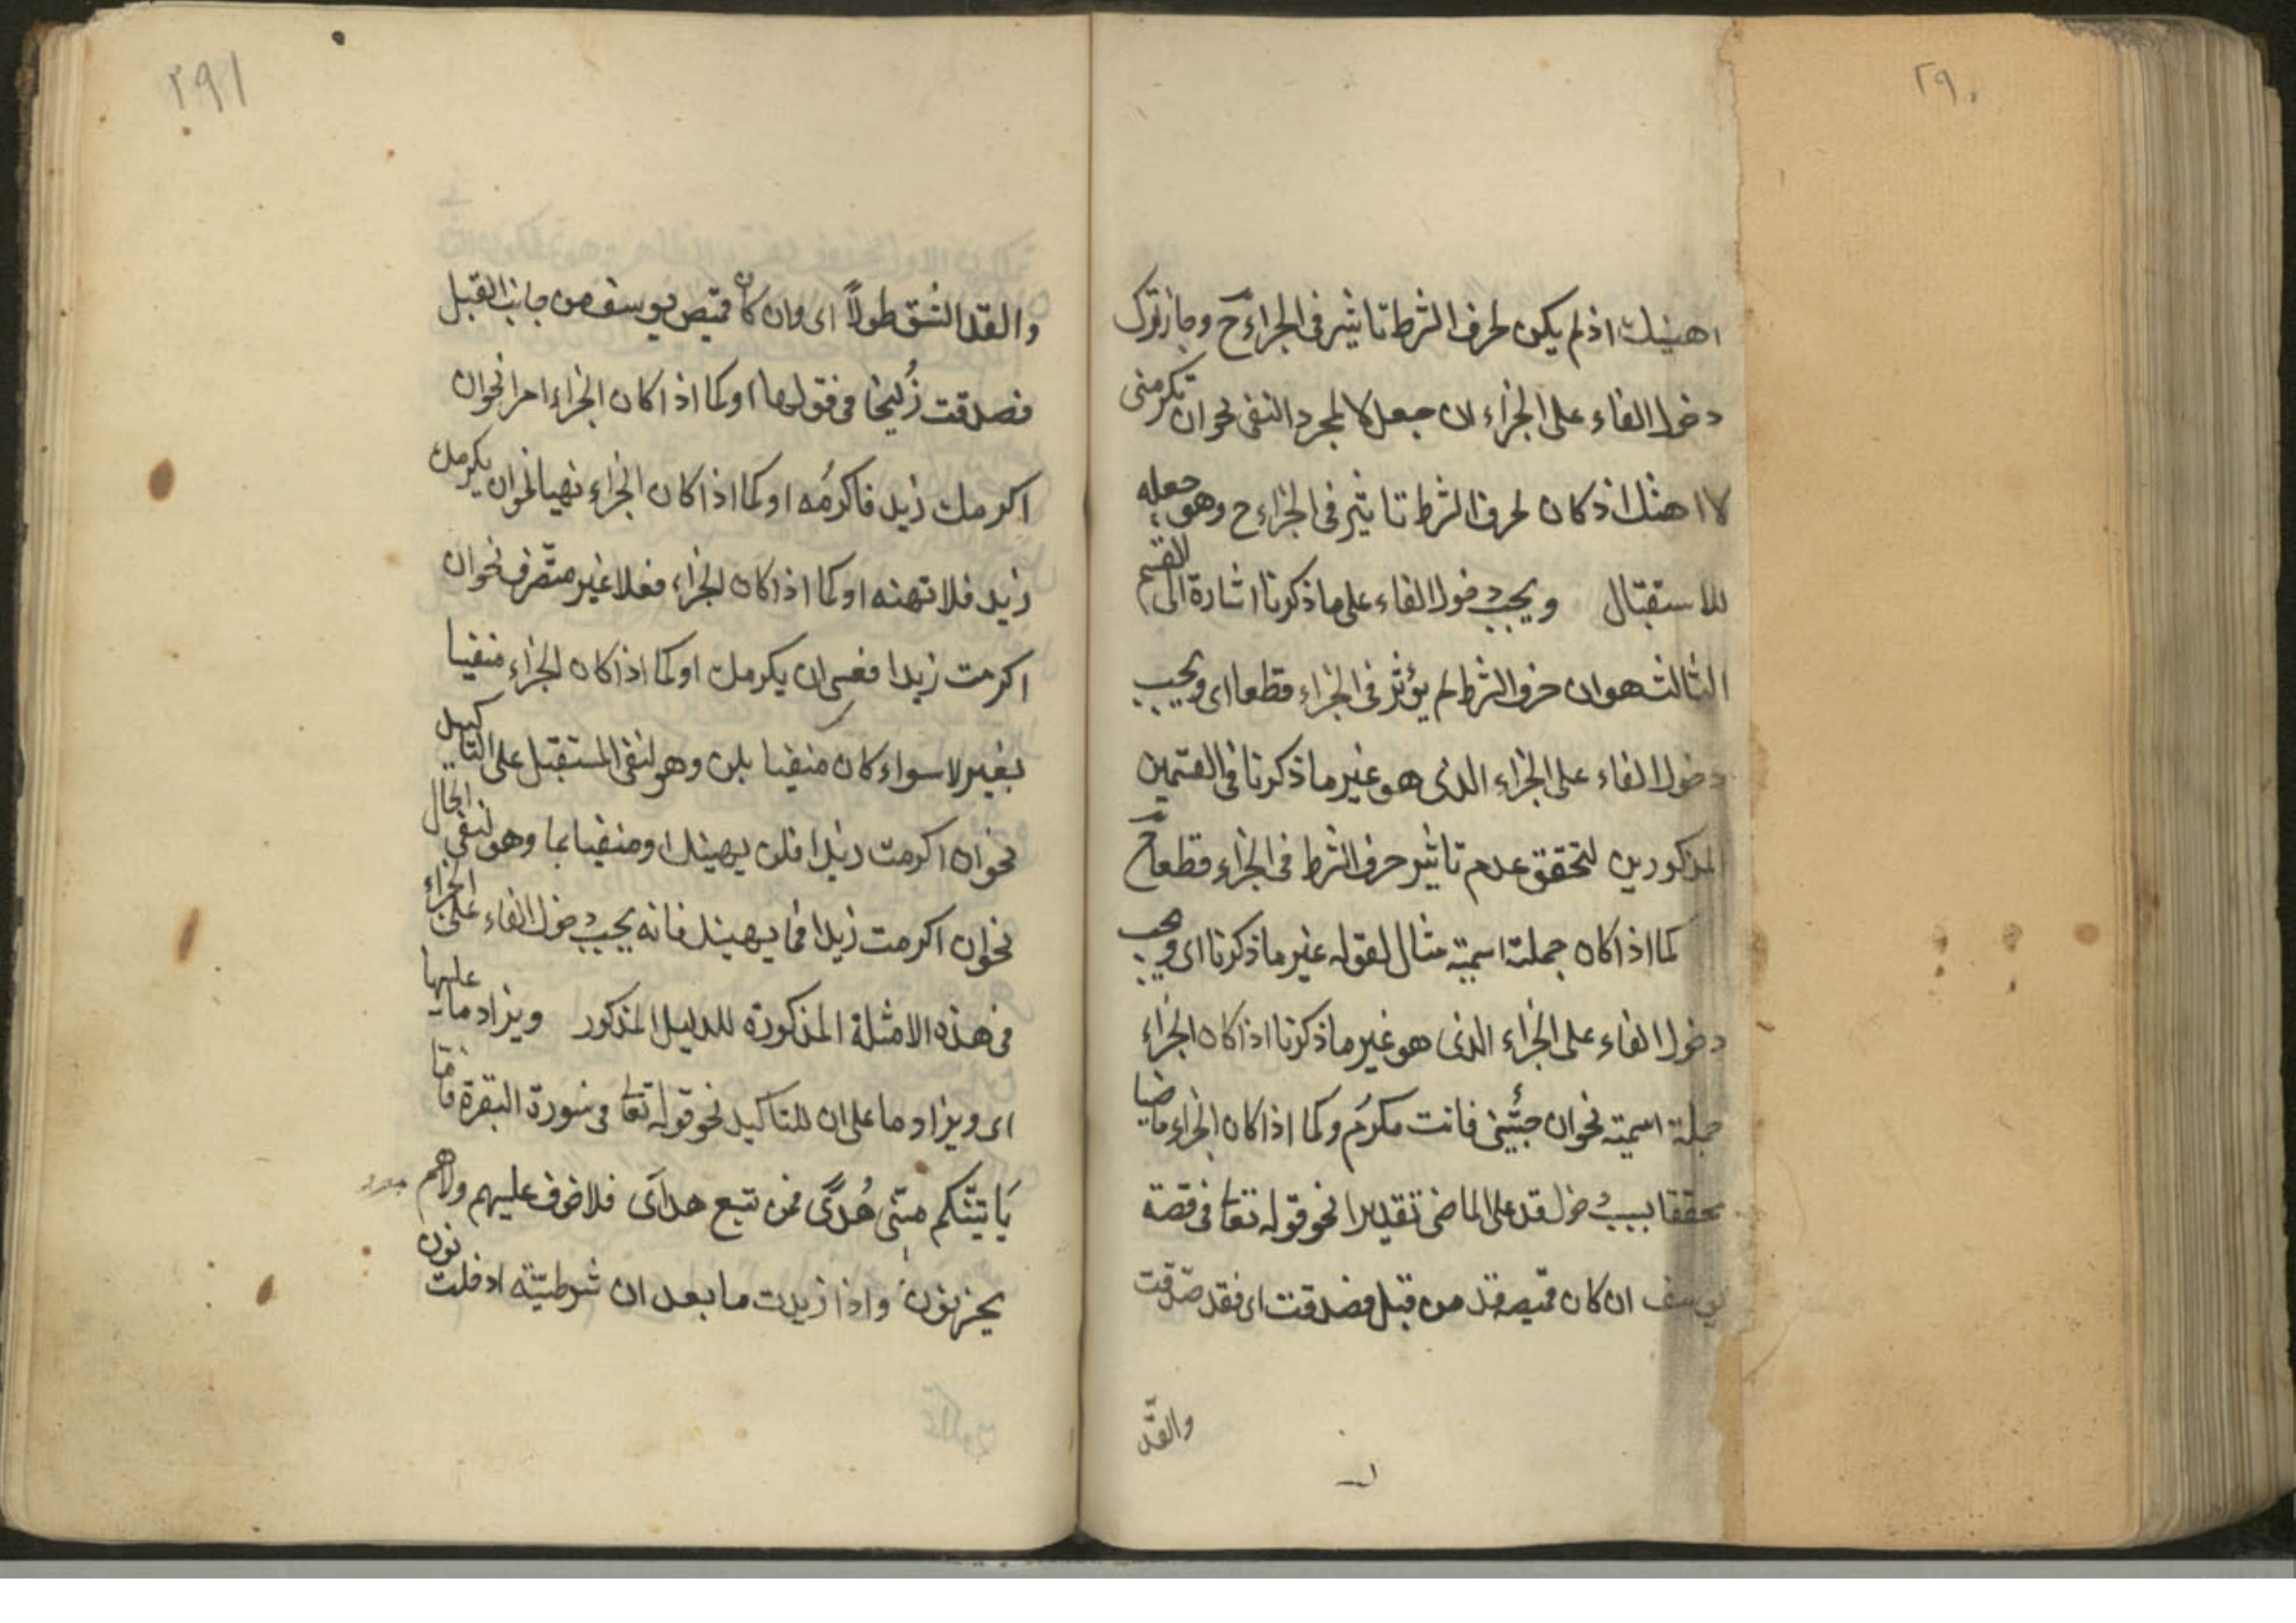 ٢٩٠
اهينك اذ لم يكن لحرف الشرط تاثير فى الجزاء ح وجاز ترك
دخول الفاء على الجزاء ان جعل لا لمجرد النفى نحو ان تكرمنى
لا اهنك اذ كان لحرف الشرط تاثير فى الجزاء ح وهو جعله
للاستقبال ويجب دخول الفاء على ما ذكرنا اشارة الى القسم
الثالث هو ان حرف الشرط لم يؤثر فى الجزاء قطعا اى ويجب
دخول الفاء على الجزاء الذى هو غير ما ذكرنا فى القسمين
المذكورين لتحقق عدم تاثير حرف الشرط فى الجزاء قطعا ح
كما اذا كان جملة اسمية مثال لقوله غير ما ذكرنا اى ويجب
دخول الفاء على الجزاء الذى هو غير ما ذكرنا اذا كان الجزاء
جملة اسمية نحو ان جئتنى فانت مكرم وكما اذا كان الجزاء ماضيا
محققا بسبب دخول قد على الماضى تقديرا نحو قوله تعا فى قصة
يوسف ان كان قميصه قد من قبل فصدقت اى فقد صدقت
والقدّ
٢٩١
والقد الشق طولاً اى وان كان قميص يوسف من جانب القبل
فصدقت زُليخا فى قولها او كما اذا كان الجزاء امرا نحو ان
اكرمك زيد فاكرمُه او كما اذا كان الجزاء نهيا نحو ان يكرمك
زيد فلا تهنه او كما اذا كان الجزاء فعلا غير متصرف نحو ان
اكرمت زيدا فعسى ان يكرمك او كما اذا كان الجزاء منفيا
بغير لا سواء كان منفيا بلن وهو لنفى المستقبل على التاكيد
نحو ان اكرمت زيدا فلن يهينك او منفيا بما وهو لنفى الحال
نحو ان اكرمت زيدا فما يهينك فانه يجب دخول الفاء على الجزاء
فى هذه الامثلة المذكورة للدليل المذكور ويزاد ما عليها
اى ويزاد ما على ان للتاكيد نحو قوله تعا فى سورة البقرة فامّا
يَاتينّكم منّى هُدًى فمن تبع هداى فلا خوف عليهم ولا هم
يحزنون واذا زيدت ما بعد ان شرطيّة ادخلت نون